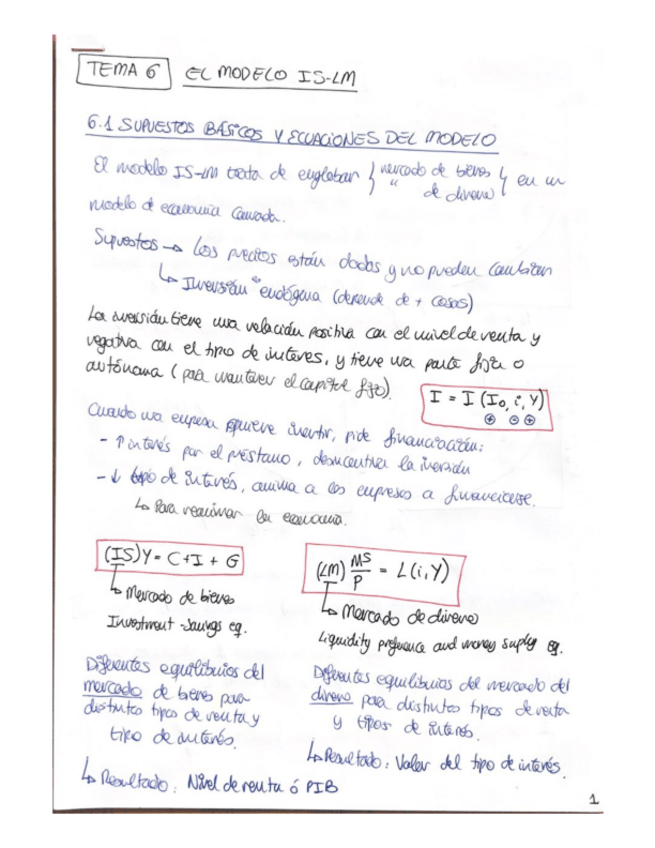 TEMA 6 EL MODELO IS-LM
6.1 SUPUESTOS BÁSICOS Y ECUACIONES DEL MODELO
El modelo IS-LM trata de englobar { mercado de bienes } en un
" de dinero
modelo de economía cerrada.
Supuestos → Los precios están dados y no pueden cambiar
↳ Inversión "endógena (depende de + cosas)
La inversión tiene una relación positiva con el nivel de renta y
negativa con el tipo de interés, y tiene una parte fija o
autónoma (para mantener el capital fijo).
I = I (I₀, i, Y)
⊕ ⊖ ⊕
Cuando una empresa quiere invertir, pide financiación:
- ↑ interés por el préstamo, desincentiva la inversión
- ↓ tipo de interés, anima a las empresas a financiarse.
↳ Para reanimar la economía.
(IS) Y = C + I + G
↳ Mercado de bienes
Investment - Savings eq.
Diferentes equilibrios del
mercado de bienes para
distintos tipos de renta y
tipo de interés.
↳ Resultado: Nivel de renta ó PIB
(LM) MS/P = L(i, Y)
↳ Mercado de dinero
Liquidity preference and money supply eq.
Diferentes equilibrios del mercado del
dinero para distintos tipos de renta
y tipos de interés.
↳ Resultado: Valor del tipo de interés.
1